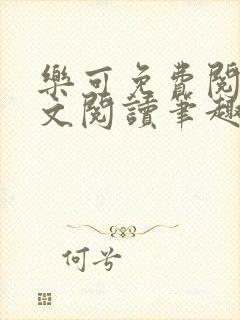 樂可免費閱
文閱讀筆趣
何兮